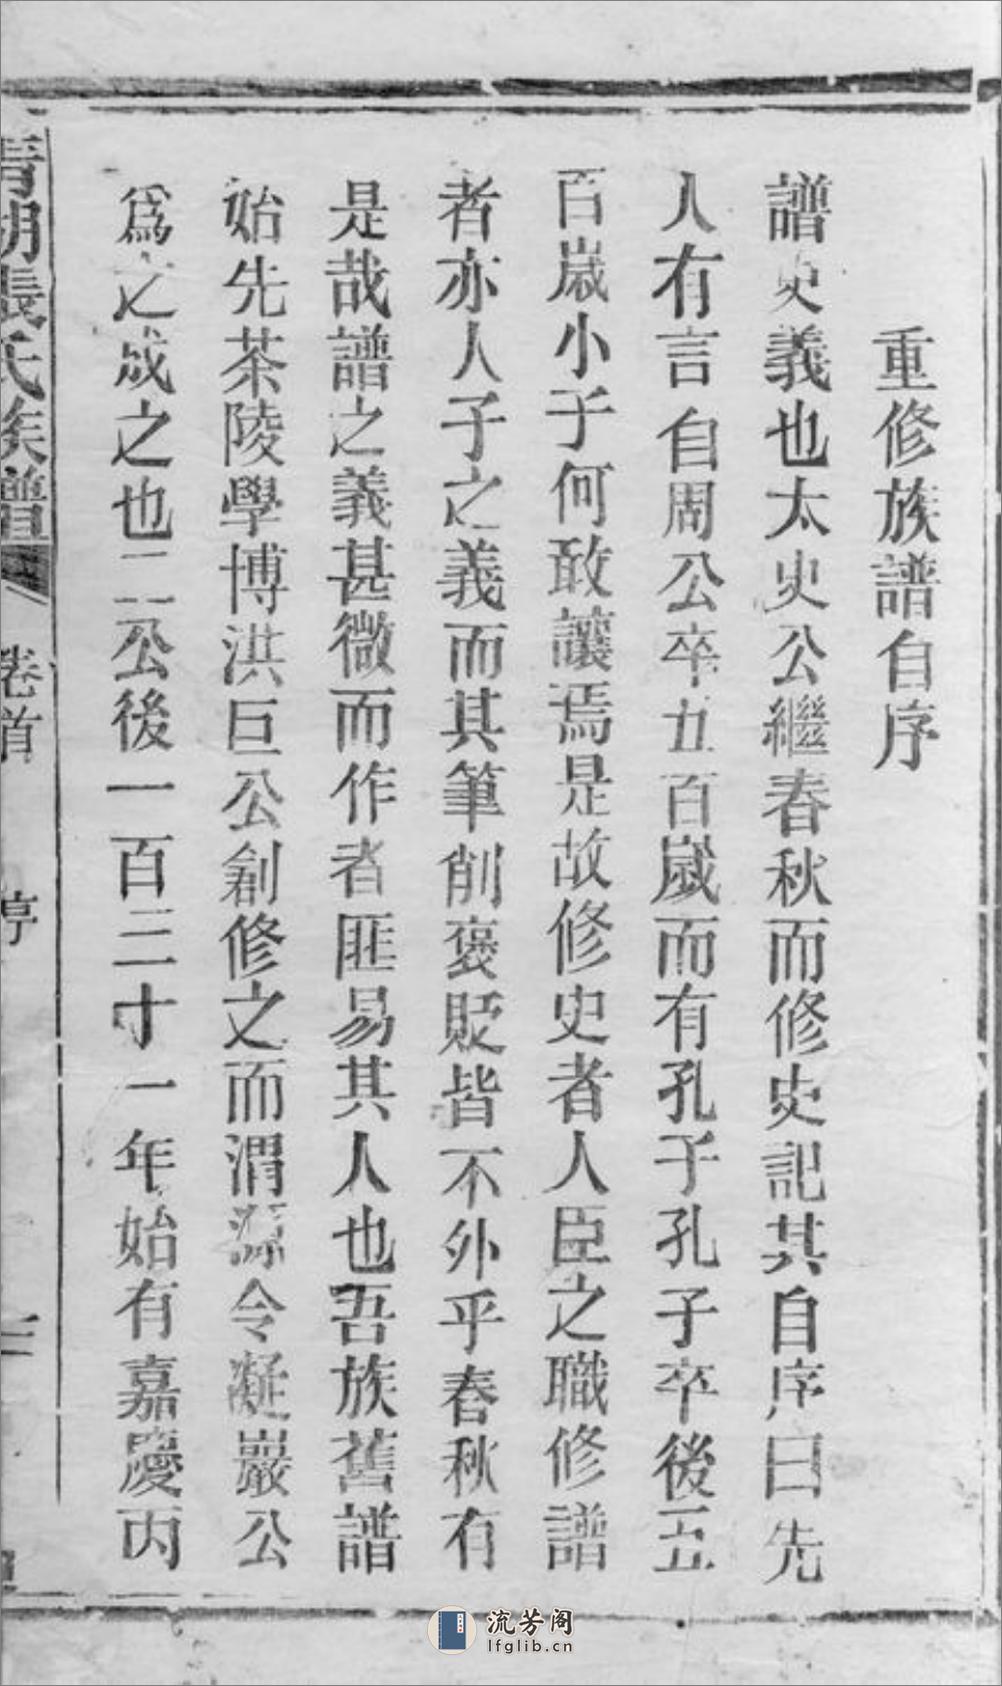 重修族譜自序
譜史義也太史公繼春秋而修史記其自序曰先
人有言自周公卒五百嵗而有孔子孔子卒後五
百嵗小子何敢讓焉是故修史者人臣之職修譜
者亦人子之義而其筆削褒貶皆不外乎春秋有
是哉譜之義甚微而作者匪易其人也吾族舊譜
始先茶陵學博洪巨公創修之而渭源令凝巖公
爲之成之也二公後一百三十一年始有嘉慶丙
青湖張氏族譜 卷首 序
流芳阁
lfglib.cn